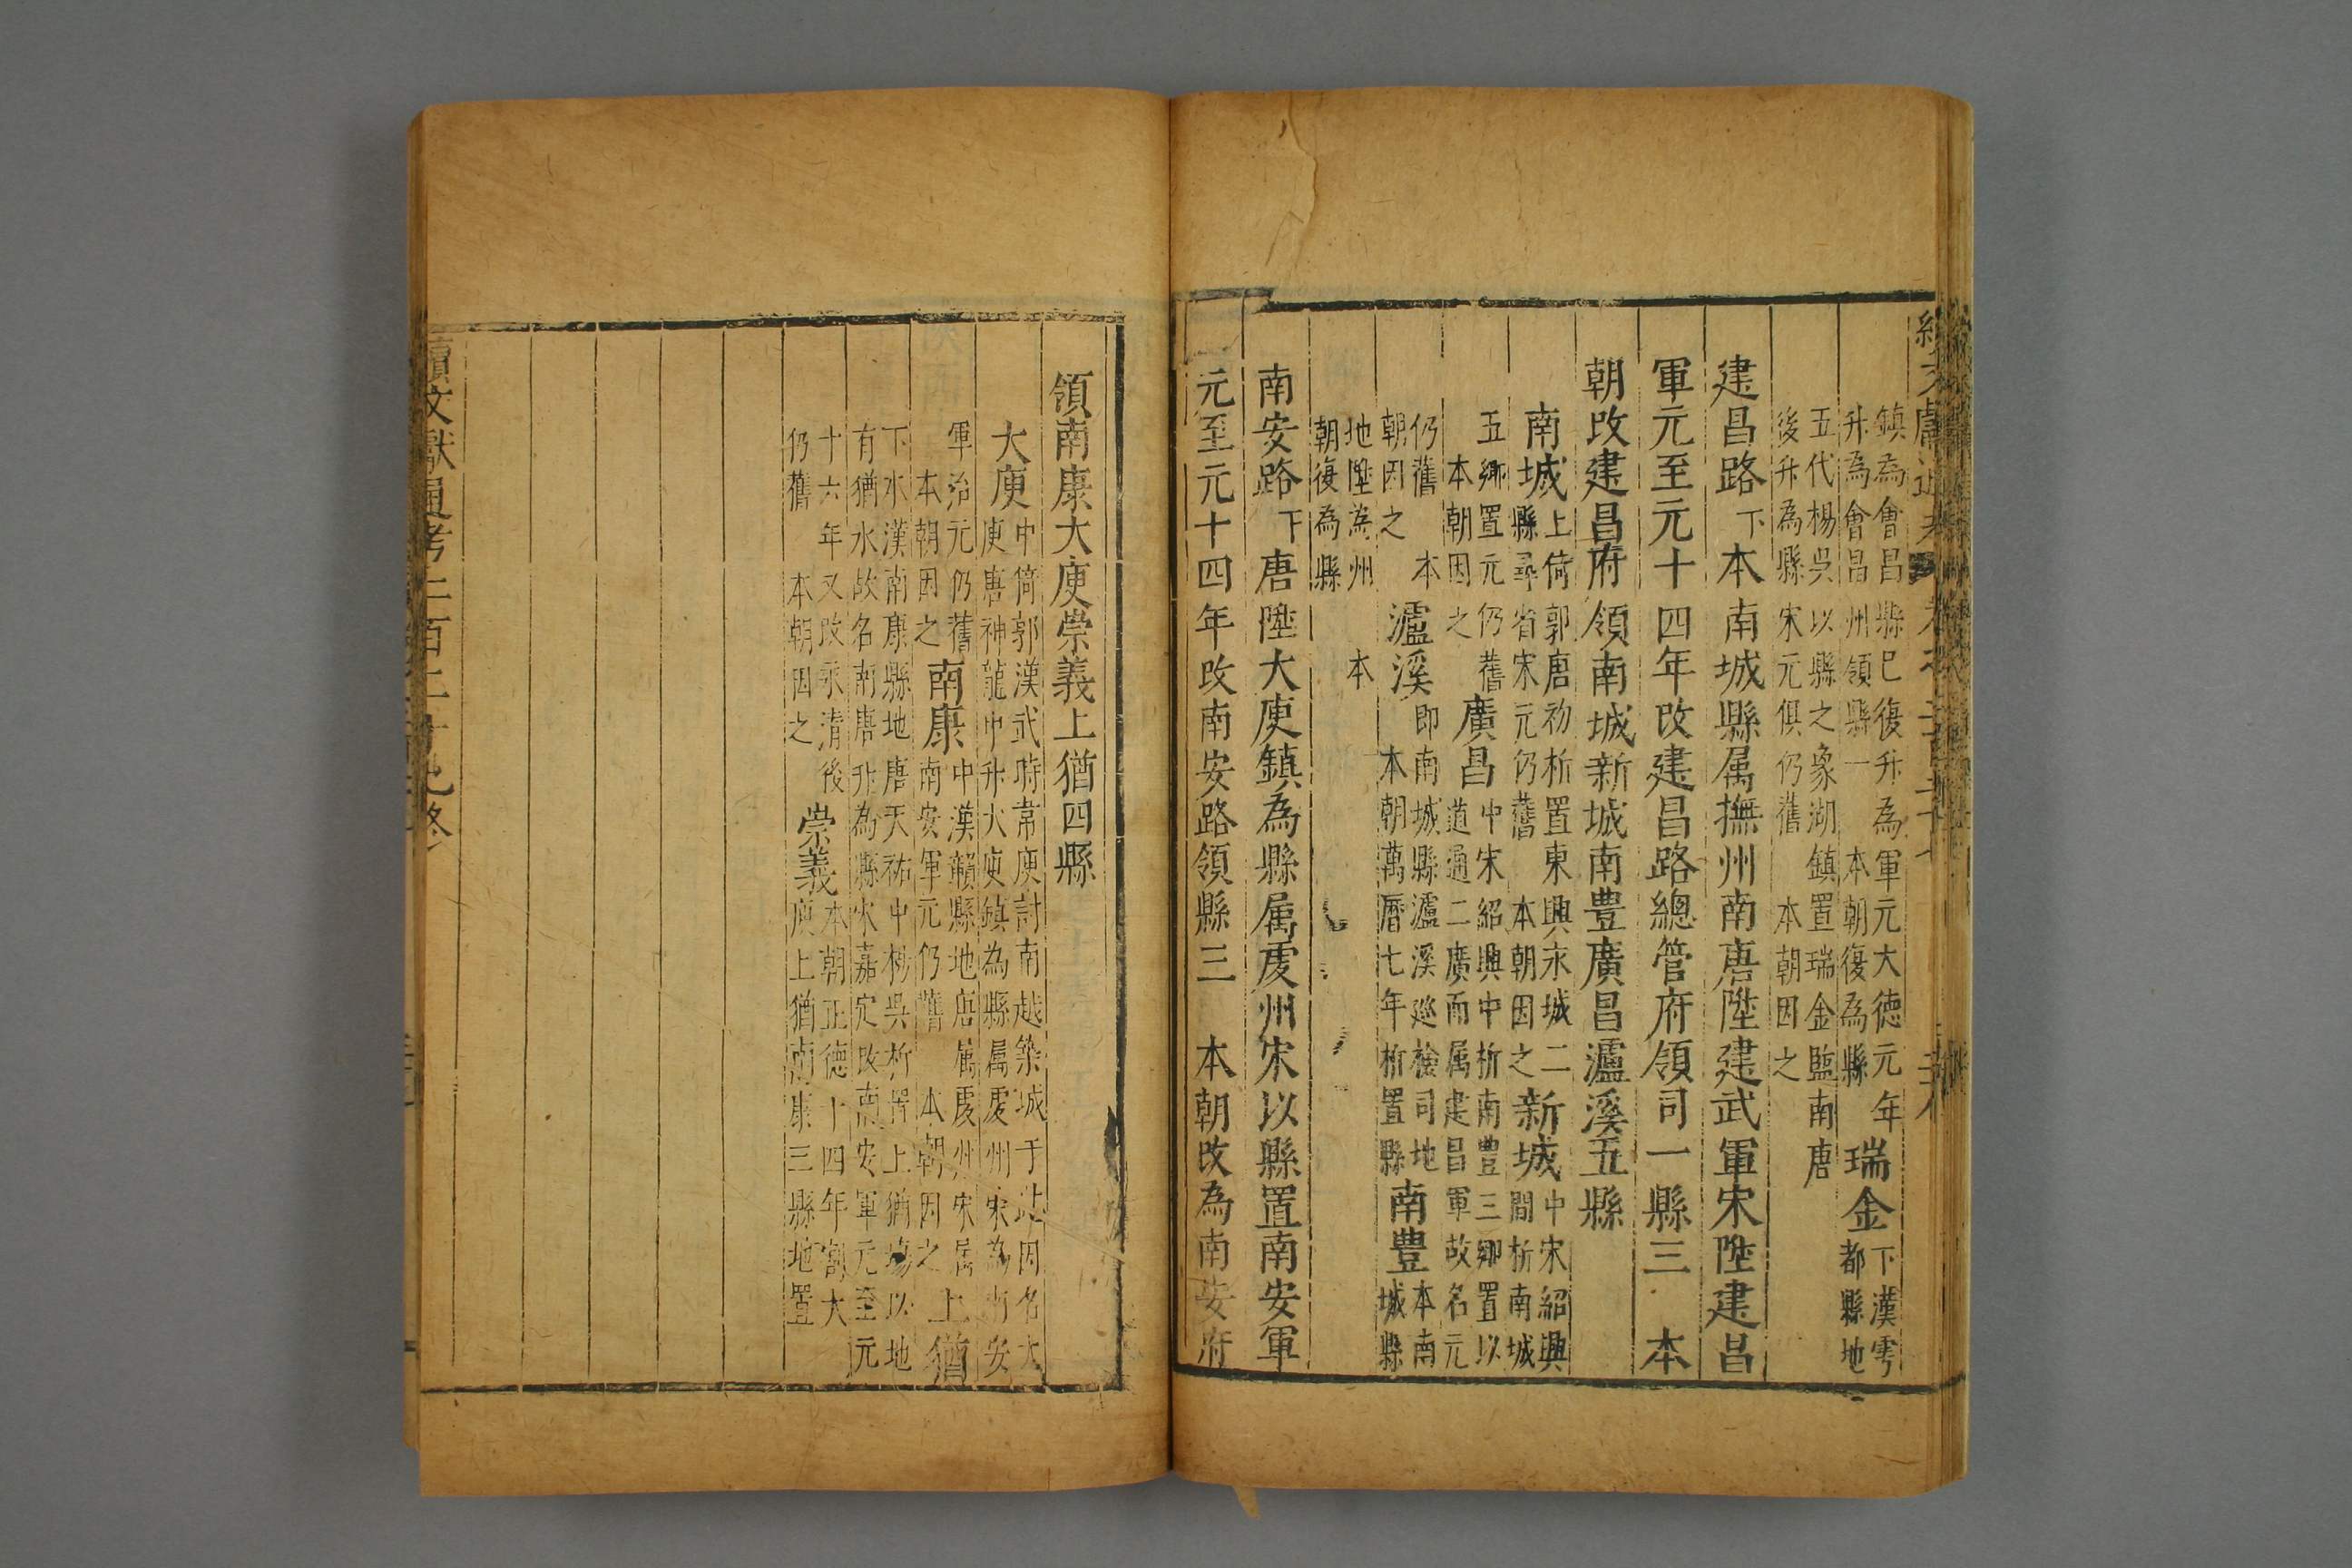 鎮為會昌縣巳復升為軍元大德元年
升為會昌州領縣一 本朝復為縣
瑞金
下漢雩
都縣地
五代楊吳以縣之象湖鎮置瑞金監南唐
後升為縣宋元俱仍舊 本朝因之
建昌路下本南城縣属撫州南唐陞建武軍宋陞建昌
軍元至元十四年改建昌路總管府領司一縣三 本
朝改建昌府領南城新城南豊廣昌瀘溪五縣
南城
上倚郭唐初析置東興永城二
縣尋省宋元仍舊 本朝因之
新城
中宋紹興
間析南城
五鄉置元仍舊
本朝因之
廣昌
中宋紹興中析南豊三鄉置以
道通二廣而属建昌軍故名元
仍舊 本
朝因之
瀘溪
即南城縣瀘溪巡檢司地
本朝萬曆七年析置縣
南豊
本南
城縣
地陞為州 本
朝復為縣
南安路下唐陞大庾鎮為縣属虔州宋以縣置南安軍
元至元十四年改南安路領縣三 本朝改為南安府
領南康大庾崇義上猶四縣
大庾
中倚郭漢武時常庾討南越築城于此因名大
庾唐神龍中升大庾鎮為縣属虔州宋為南安
軍治元仍舊
本朝因之
南康
中漢贛縣地唐属虔州宋属
南安軍元仍舊 本朝因之
上猶
下水漢南康縣地唐天祐中楊吳析置上猶場以地
有猶水故名南唐升為縣宋嘉定改南安軍元至元
十六年又改永清後
仍舊 本朝因之
崇義
本朝正德十四年割大
庾上猶南康三縣地置
續文獻通考二百二十九終